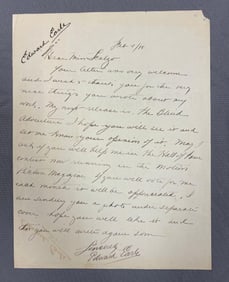 Edward Earle
Dear Miss
Your letter was very welcome
and I want to thank you for the very
nice things you wrote about my
work. My next release is The Blind
Adventure I hope you will see it and
let me know your opinion of it. May I
ask if you will help me in the Hall of Fame
contest now running in the Motion
Picture Magazine if you will vote for me
each month it will be appreciated. I
am sending you a photo under separate
cover, hope you will like it and
you will write again soon
Sincerely
Edward Earle